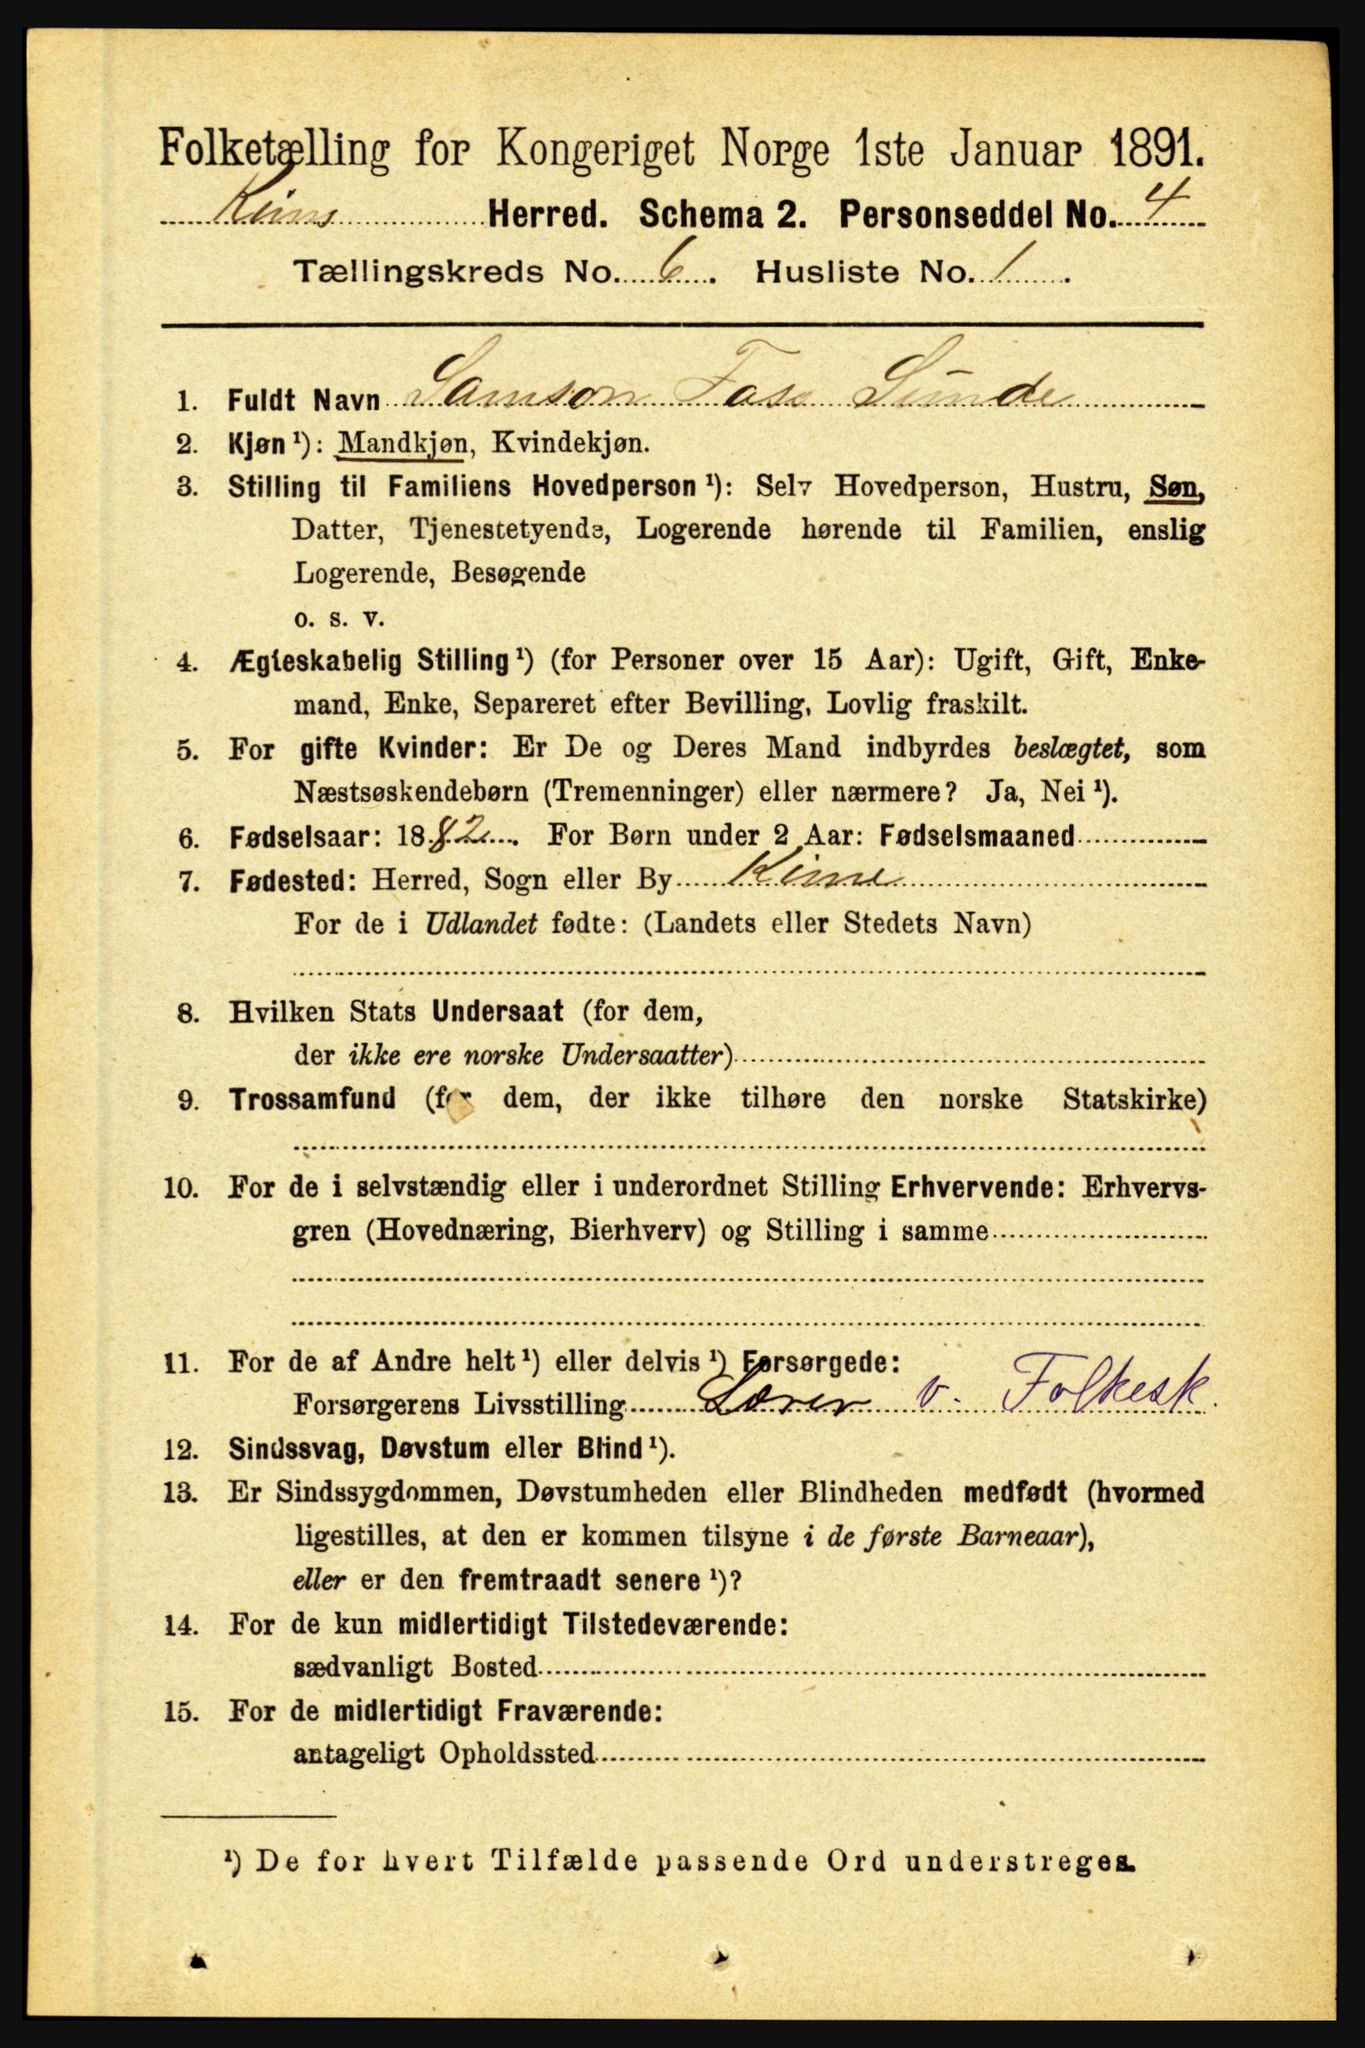 Folketælling for Kongeriget Norge 1ste Januar 1891.
Kinns Herred. Schema 2. Personseddel No. 4
Tællingskreds No. 6. Husliste No. 1.
1. Fuldt Navn Samson Faso Sunde
2. Kjøn ¹): Mandkjøn, Kvindekjøn.
3. Stilling til Familiens Hovedperson ¹): Selv Hovedperson, Hustru, Søn,
Datter, Tjenestetyende, Logerende hørende til Familien, enslig
Logerende, Besøgende
o. s. v.
4. Ægteskabelig Stilling ¹) (for Personer over 15 Aar): Ugift, Gift, Enke-
mand, Enke, Separeret efter Bevilling, Lovlig fraskilt.
5. For gifte Kvinder: Er De og Deres Mand indbyrdes beslægtet, som
Næstsøskendebørn (Tremenninger) eller nærmere? Ja, Nei ¹).
6. Fødselsaar: 1882. For Børn under 2 Aar: Fødselsmaaned
7. Fødested: Herred, Sogn eller By Kinn
For de i Udlandet fødte: (Landets eller Stedets Navn)
8. Hvilken Stats Undersaat (for dem,
der ikke ere norske Undersaatter)
9. Trossamfund (for dem, der ikke tilhøre den norske Statskirke)
10. For de i selvstændig eller i underordnet Stilling Erhvervende: Erhvervs-
gren (Hovednæring, Bierhverv) og Stilling i samme
11. For de af Andre helt ¹) eller delvis ¹) Forsørgede:
Forsørgerens Livsstilling Lærer v. Folkesk.
12. Sindssvag, Døvstum eller Blind ¹).
13. Er Sindssygdommen, Døvstumheden eller Blindheden medfødt (hvormed
ligestilles, at den er kommen tilsyne i de første Barneaar),
eller er den fremtraadt senere ¹)?
14. For de kun midlertidigt Tilstedeværende:
sædvanligt Bosted
15. For de midlertidigt Fraværende:
antageligt Opholdssted
¹) De for hvert Tilfælde passende Ord understreges.